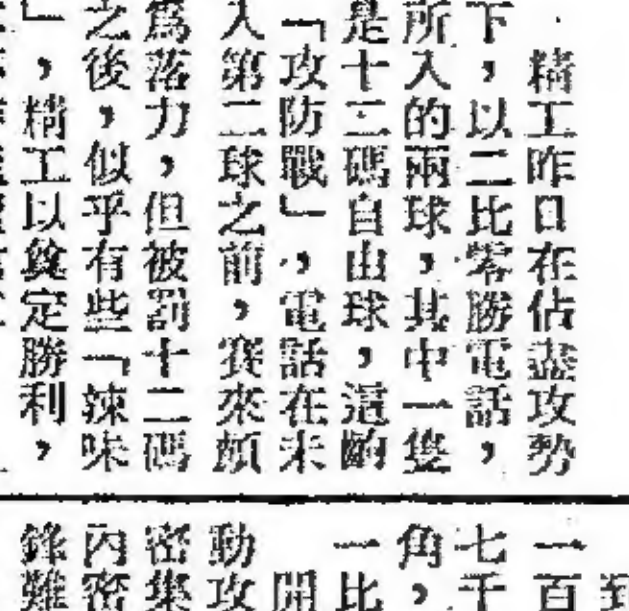 精工昨日在佔盡攻勢
下，以二比零勝電話，
所入的兩球，其中一隻
是十二碼自由球，這齣
「攻防戰」，電話在未
入第二球之前，賽來頗
爲落力，但被罰十二碼
之後，似乎有些「辣味
」，精工以為定勝利，
到
一百
七千
角，
一比
開
動攻
密集
內密
鋒難